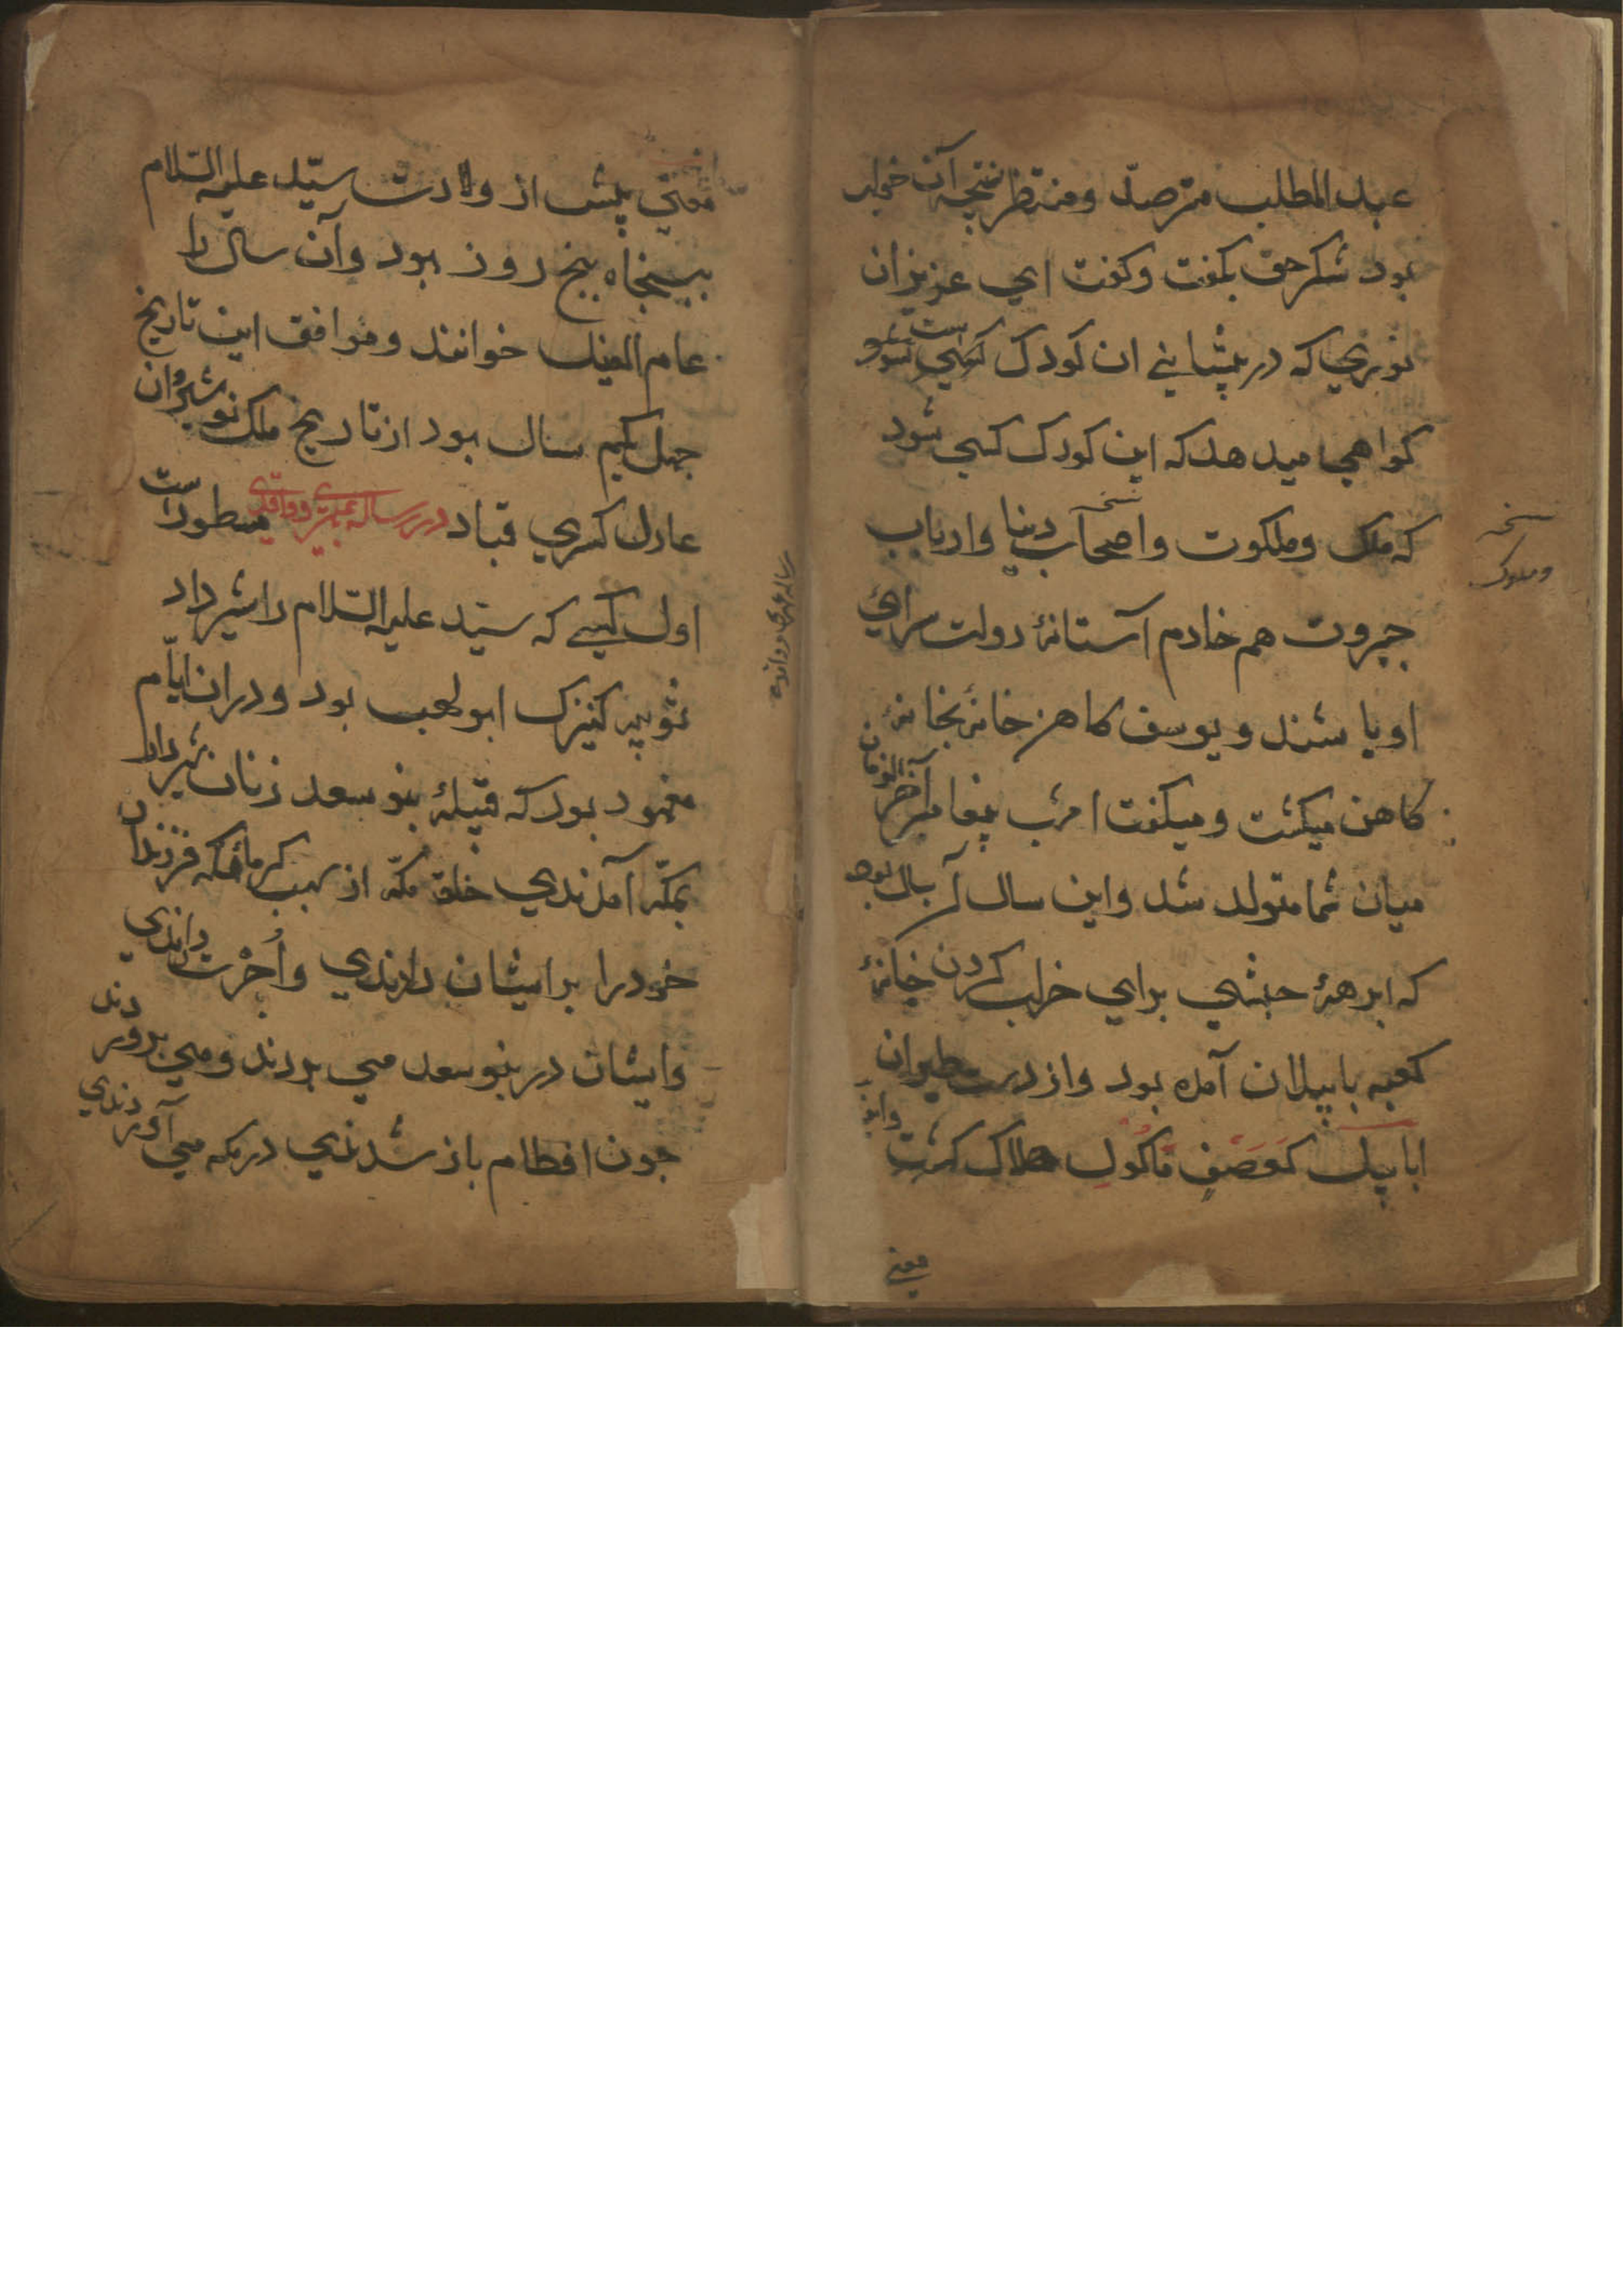 عبدالمطلب مترصد ومنتظر نتیجه آن خواب
بود شکر حق بکفت وکفت ای عزیزان
نوری که در پیشانی ان کودک
کواهی میدهد که این کودک کسی شود
که ملک وملکوت واصحاب دنیا وارباب
نسخه
وملوک
جبروت هم خادم آستانۀ دولت سرای
او باشند و یوسف کاهن خانه بخانه
کاهن میکشت ومیکفت امشب پیغامبر آخر الزمان
میان شما متولد شد واین سال آن سال بود
که ابرهۀ حبشی برای خراب کردن خانۀ
کعبه با پیلان آمده بود واز دست طیران
ابابیل کَعَصفٍ مَاکُولٍ هلاک کشت
معنی
معنی پیش از ولادت سیّد علیه السّلام
ببنجاه بنج روز بود وآن سال را
عام الفیل خوانند وموافق این تاریخ
جهل یکم سال بود از تاریخ ملک نوشیروان
عادل کسری قباد در رساله مسطور است
اول کسی که سیّد علیه السّلام را شیر داد
ثویبه کنیزک ابو لهب بود ودران ایّام
معهود بود که قبیلۀ بنو سعد زنان شیردار
بمکّه آمدندی خلق مکّه از سبب کرماء مکه فرزندان
خودرا برایشان دادندی واُجْرت دادندی
وایشان در بنو سعد می بردند ومی پروردند
جون افطام باز شدندی در مکه می آوردندی